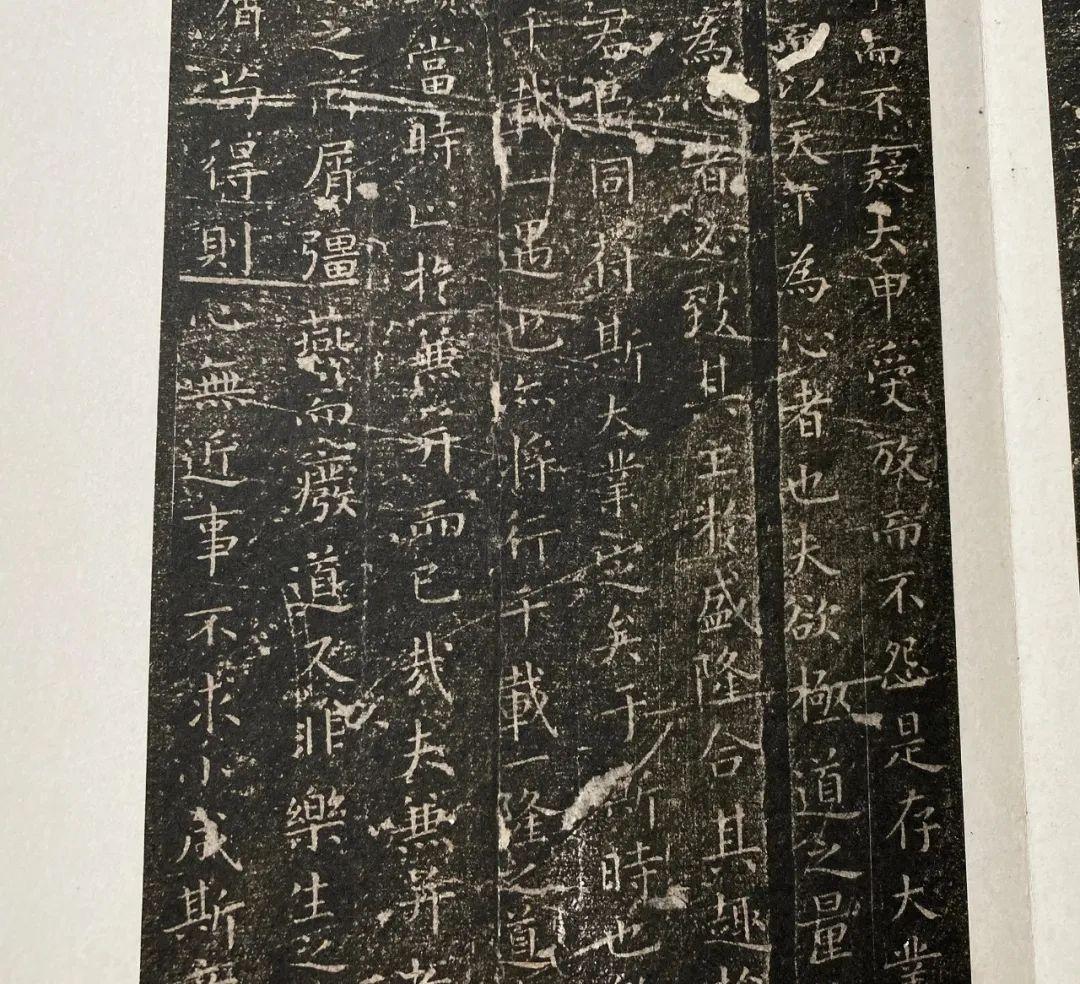 而不疑大甲受放而不怨是存大業
而以天下為心者也夫欲極道之量
為心者必致其主於盛隆合其趣於
君臣同符斯大業定矣于斯時也
千載一遇也亦將行千載一隆之道
當時止於兼并而已哉夫兼并者
之所屑彊燕而廢道又非樂生之
屑苟得則心無近事不求小成斯意